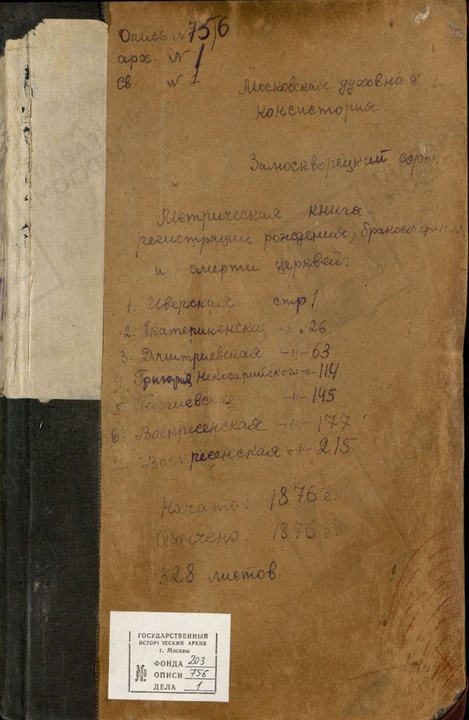 Опись № 756
арх. № 1
св № 1
Московская духовная
консистория
Замоскворецкий сорок
Метрическая книга
регистрации рождения, бракосочетания
и смерти церквей:
1. Иверская стр 1
2. Екатериненская -"- 26
3. Дмитриевская -"- 63
Григория Неокосарийского -"- 114
5. Георгиевская -"- 145
6. Воскресенская -"- 177
Воскресенская -"- 215
Начато: 1876 г.
Окончено: 1876 г.
328 листов
ГОСУДАРСТВЕННЫЙ
ИСТОРИЧЕСКИЙ АРХИВ
г. Москвы
№ ФОНДА 203
ОПИСИ 756
ДЕЛА 1